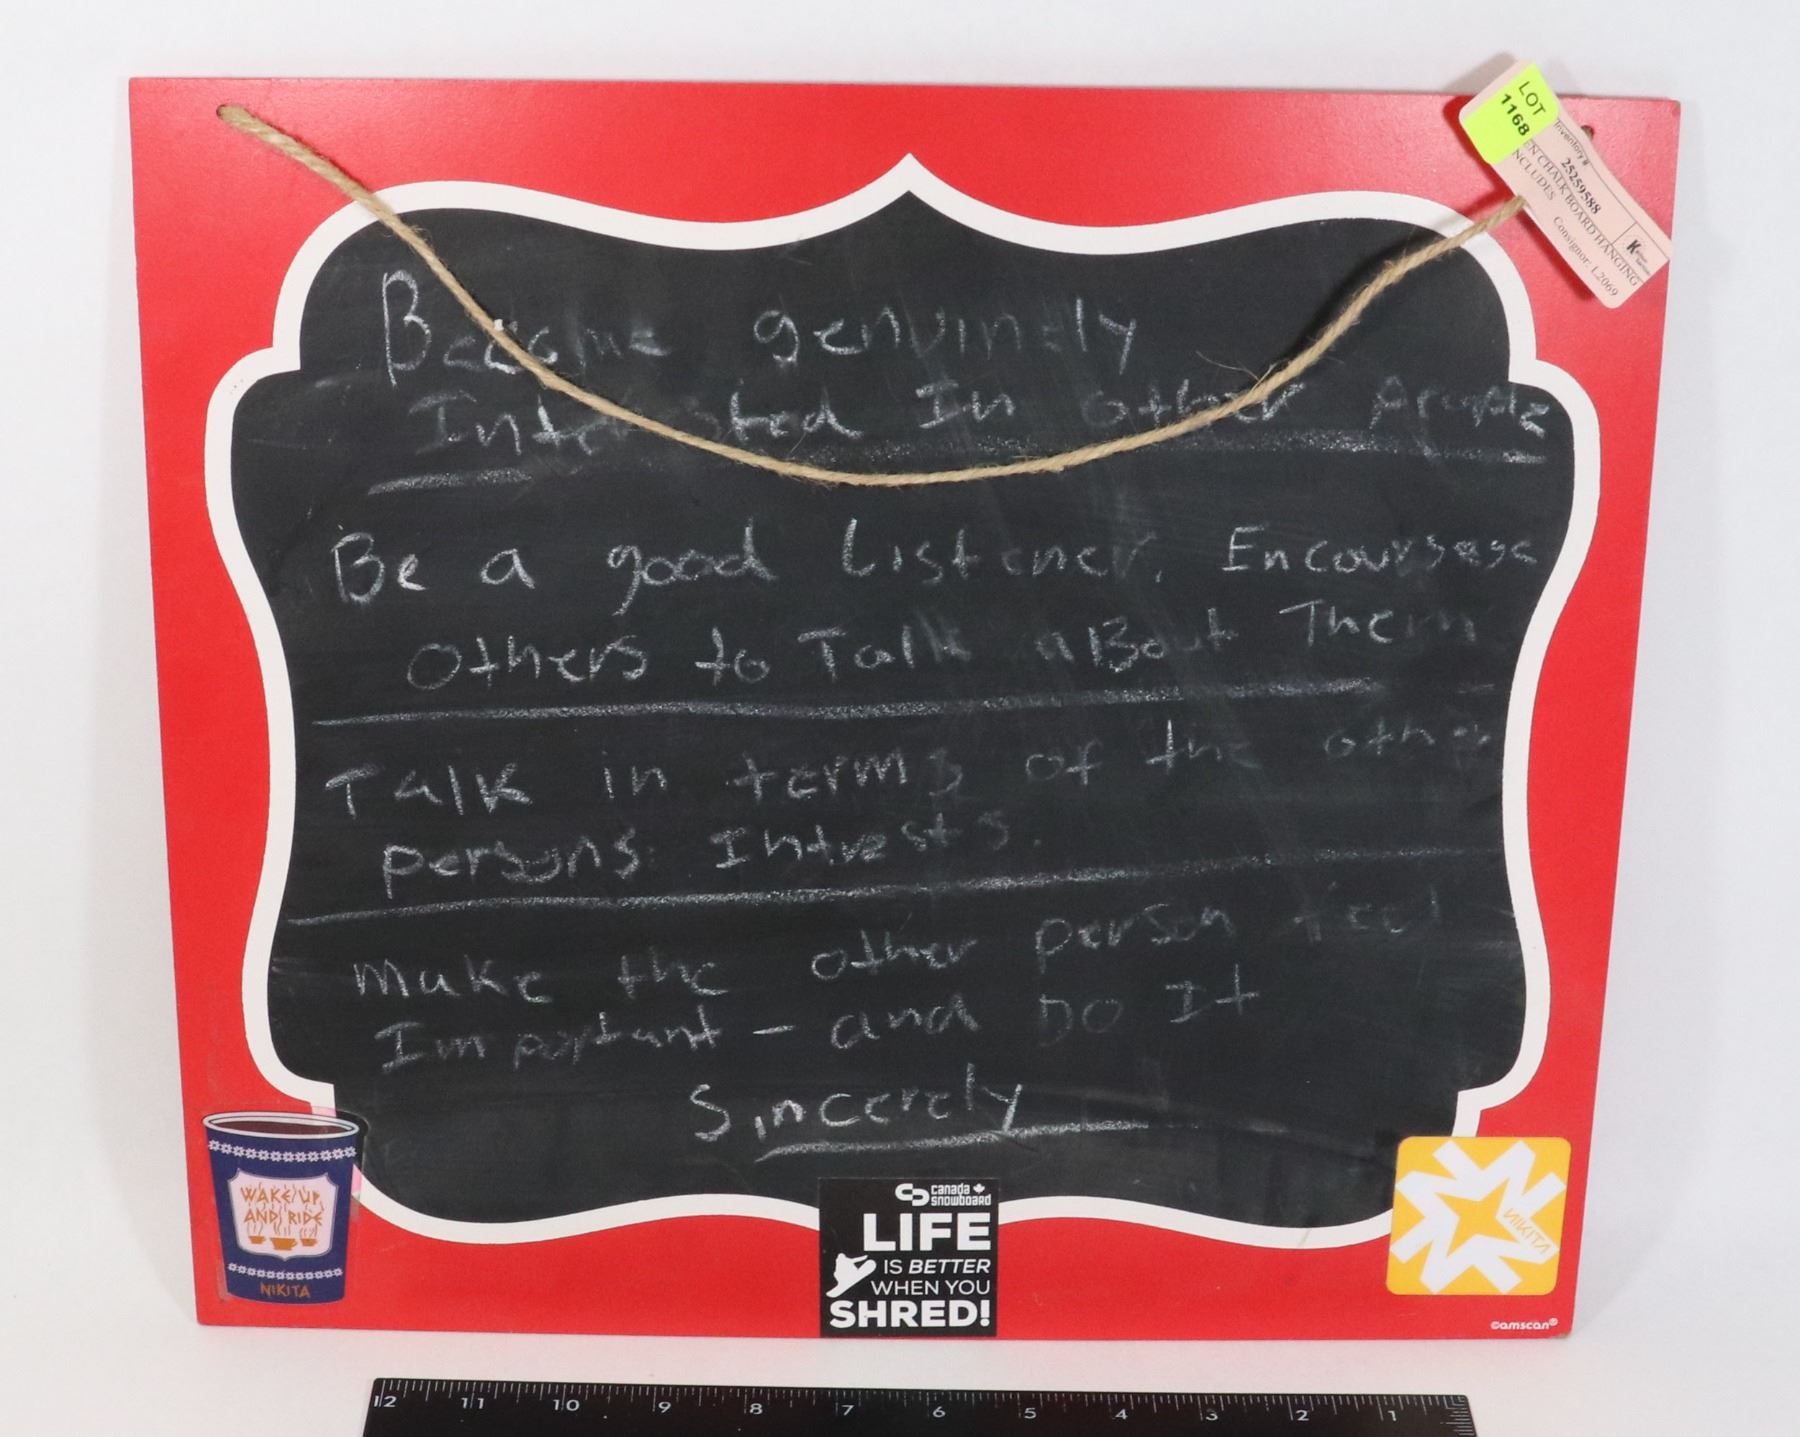 LOT
1168
Inventory #
25259588
EN CHALKBOARD HANGING
NCLUDES
Consignor: L2069
Become genuinely
Interested In other people
Be a good Listener. Encoursege
others to Talk aBout Them
Talk in terms of the other
persons Intrests.
make the other person feel
Important - and DO It
Sincerely
WAKE UP
AND RIDE
NIKITA
canada
snowboard
LIFE
IS BETTER
WHEN YOU
SHRED!
NIKITA
©amscan®
12 11 10 9 8 7 6 5 4 3 2 1